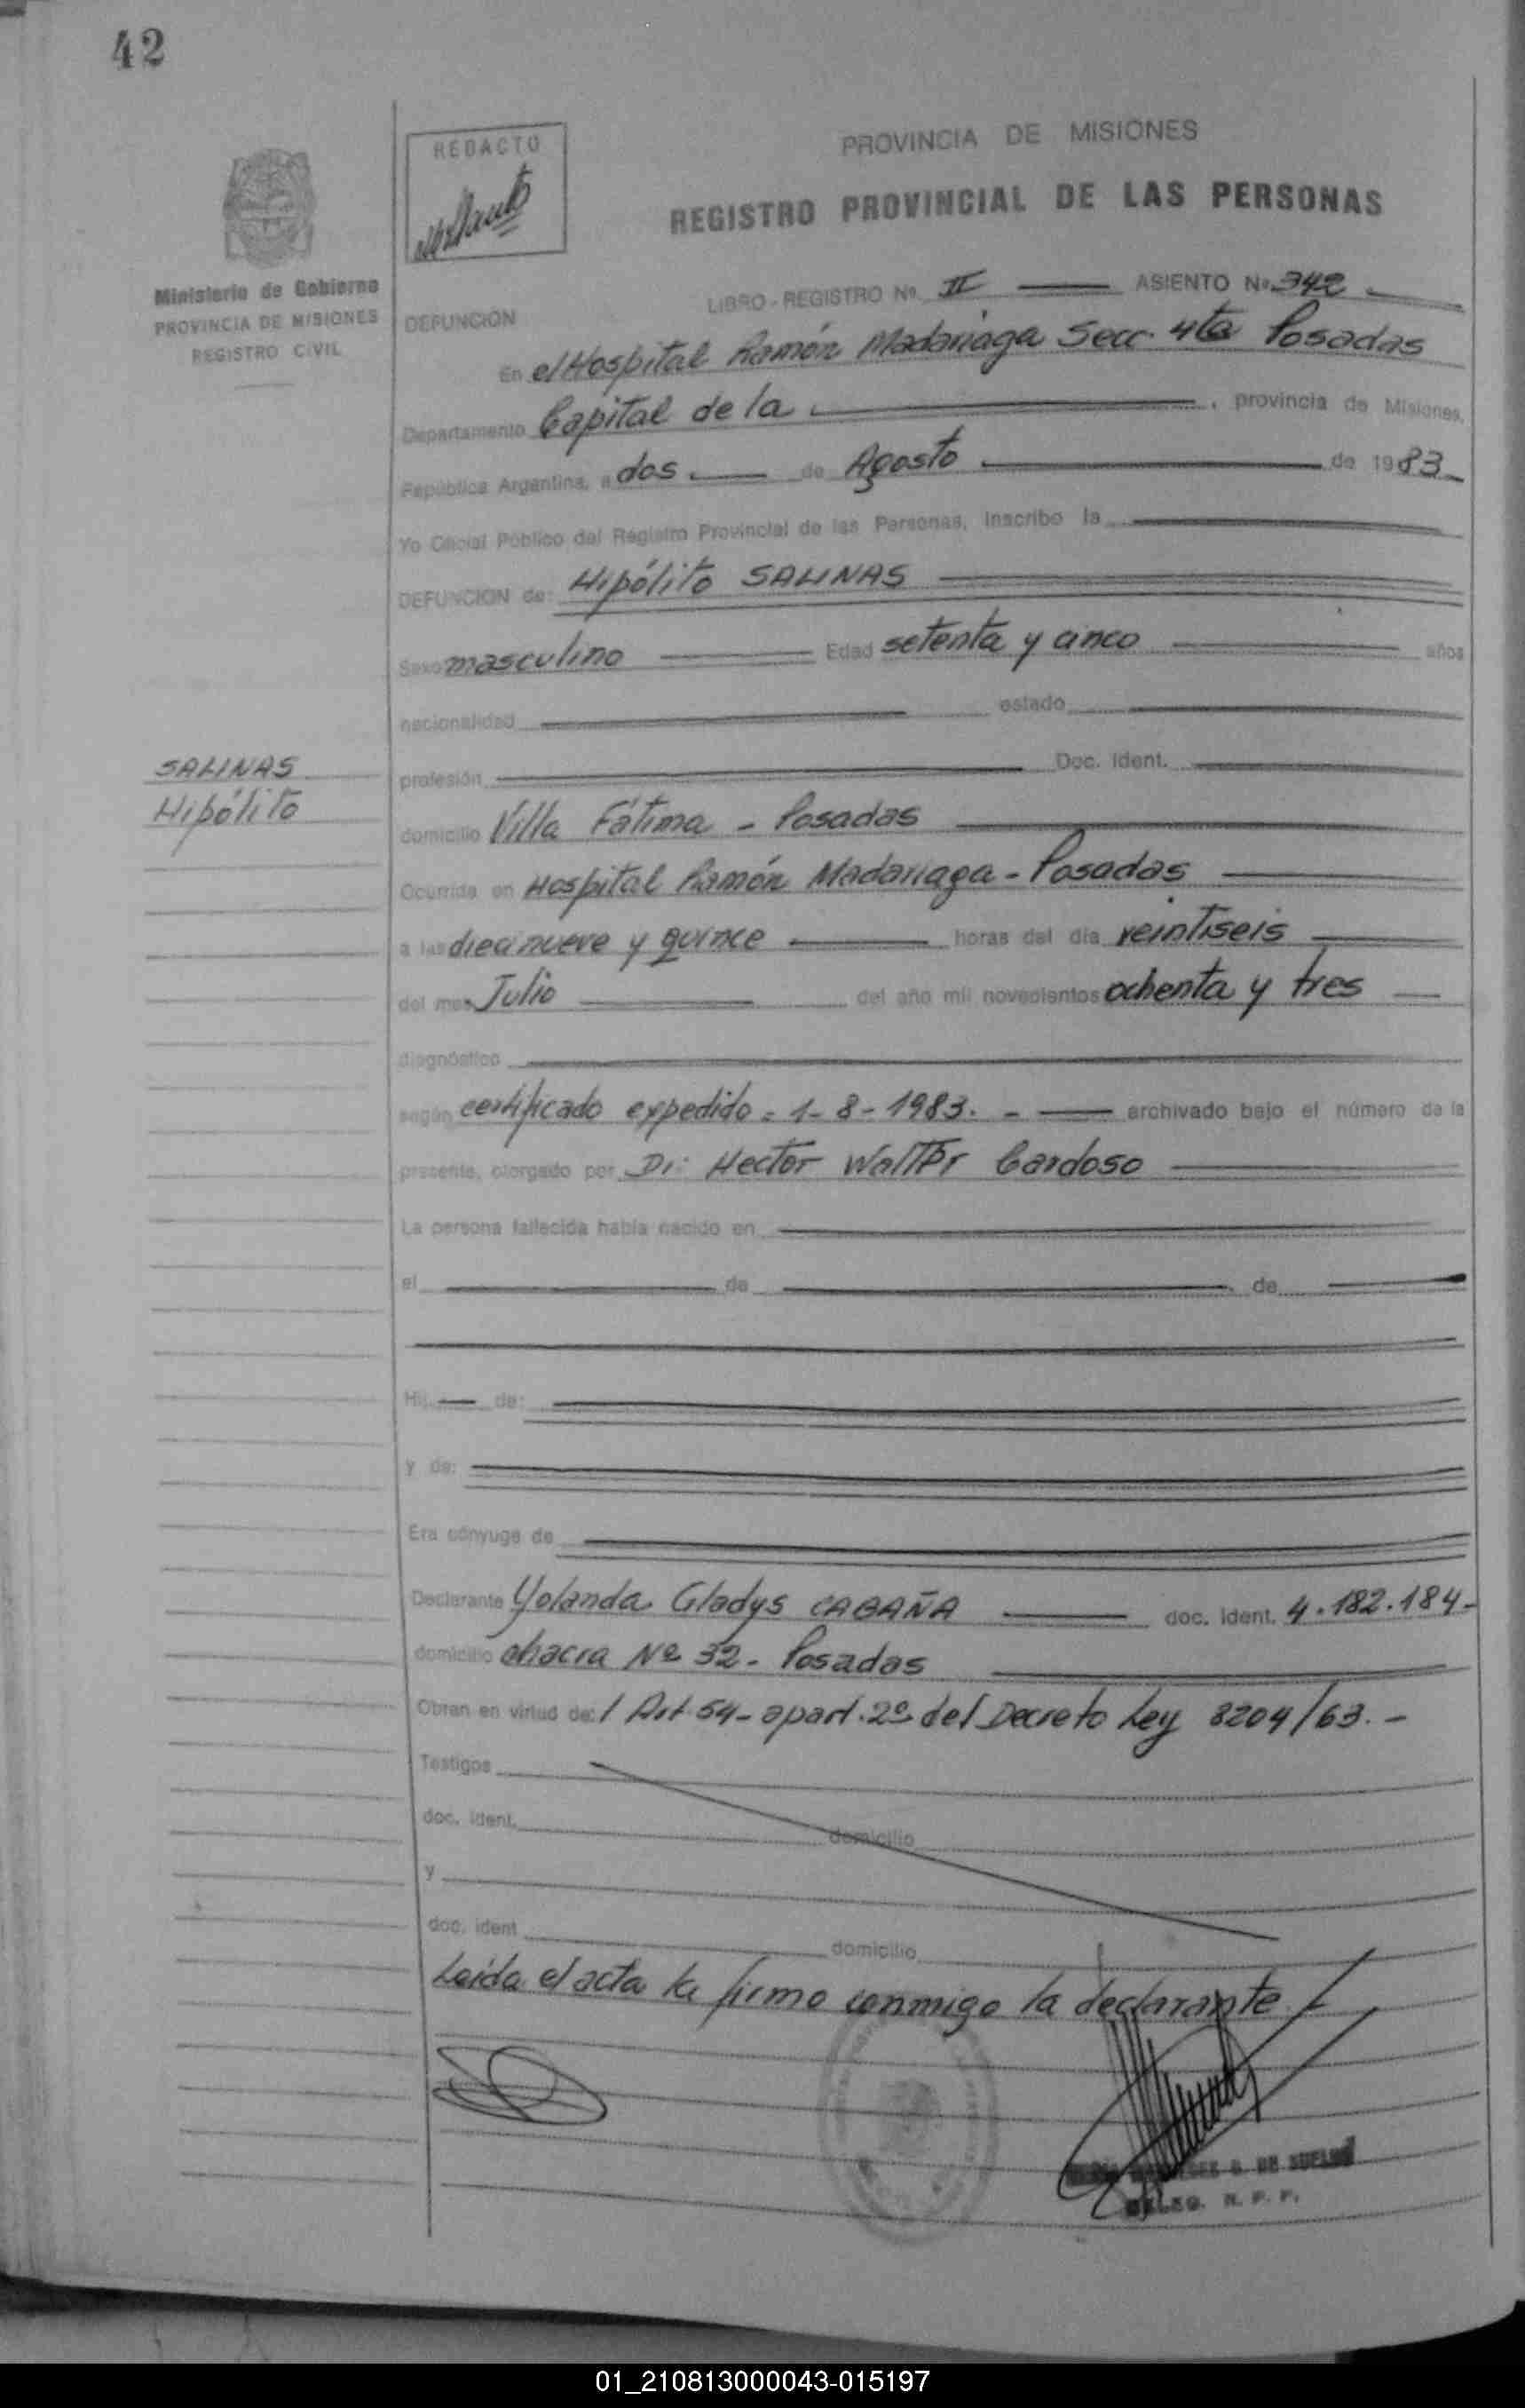 42
REDACTO
PROVINCIA DE MISIONES
REGISTRO PROVINCIAL DE LAS PERSONAS
Ministerio de Gobierno
PROVINCIA DE MISIONES
REGISTRO CIVIL
LIBRO-REGISTRO Nº II ASIENTO Nº 342
DEFUNCION
En el Hospital Ramón Madariaga Secc. 4ta Posadas
Departamento Capital de la , provincia de Misiones,
República Argentina, a dos de Agosto de 1983
Yo Oficial Público del Registro Provincial de las Personas, inscribo la
DEFUNCION de: Hipólito SALINAS
Sexo masculino Edad setenta y cinco años
nacionalidad estado
SALINAS
Hipólito
profesión Doc. Ident.
domicilio Villa Fátima - Posadas
Ocurrida en Hospital Ramón Madariaga - Posadas
a las diecinueve y quince horas del día veintiseis
del mes Julio del año mil novecientos ochenta y tres
diagnóstico
según certificado expedido = 1-8-1983. - archivado bajo el número de la
presente, otorgado por Dr: Hector Walter Cardoso
La persona fallecida había nacido en
el de de
Hij de:
y de:
Era cónyuge de
Declarante Yolanda Gladys CABAÑA doc. ident. 4.182.184-
domicilio chacra Nº 32 - Posadas
Obran en virtud de: l Art 54 - apart. 2º del Decreto Ley 8204/63. -
Testigos
doc. ident. domicilio
y
doc. ident domicilio
Leída el acta la firmo conmigo la declarante
DELEG. R. P. P.
01_210813000043-015197